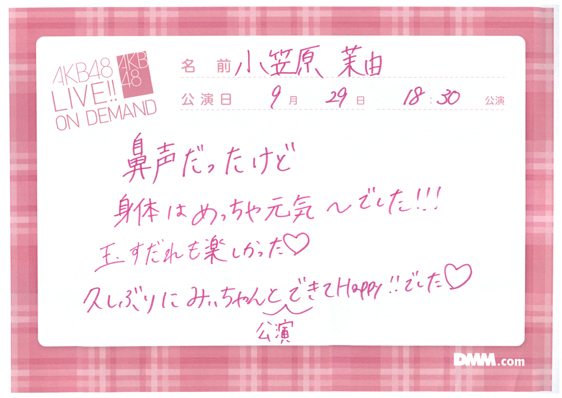 AKB48
LIVE!!
ON DEMAND
AKB
48
名 前 小笠原 茉由
公演日 9月 29日 18:30 公演
鼻声だったけど
身体はめっちゃ元気〜でした!!!
玉すだれも楽しかった♡
久しぶりにみぃちゃんとできてHappy!!でした♡
公演
DMM.com